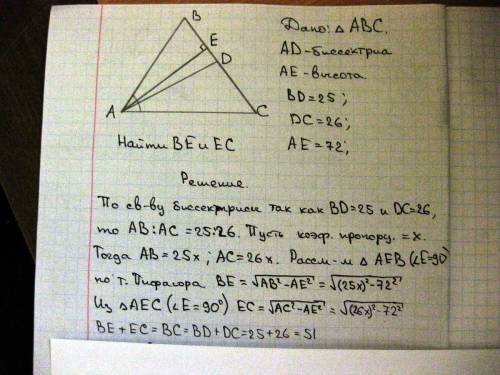 B
E
D
A
C
Дано: △ ABC.
AD-биссектриа
AE-высота
BD=25;
DC=26;
AE=72;
Найти BE и EC
Решение.
По св-ву биссектрисы так как BD=25 и DC=26,
то AB:AC = 25:26. Пусть коэф. пропор. = x.
Тогда AB=25x; AC=26x. Рассм-м △ AEB (∠E=90°)
по т. Пифагора BE = √AB²-AE² = √(25x)²-72²
Из △AEC (∠E=90°) EC = √AC²-AE² = √(26x)²-72²
BE+EC=BC=BD+DC=25+26=51